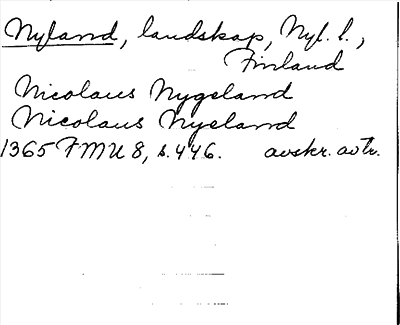 Nyland, landskap, Nyl. l.,
Finland
Nicolaus Nygeland
Nicolaus Nyeland
1365 FMU 8, s. 446. avskr. avtr.